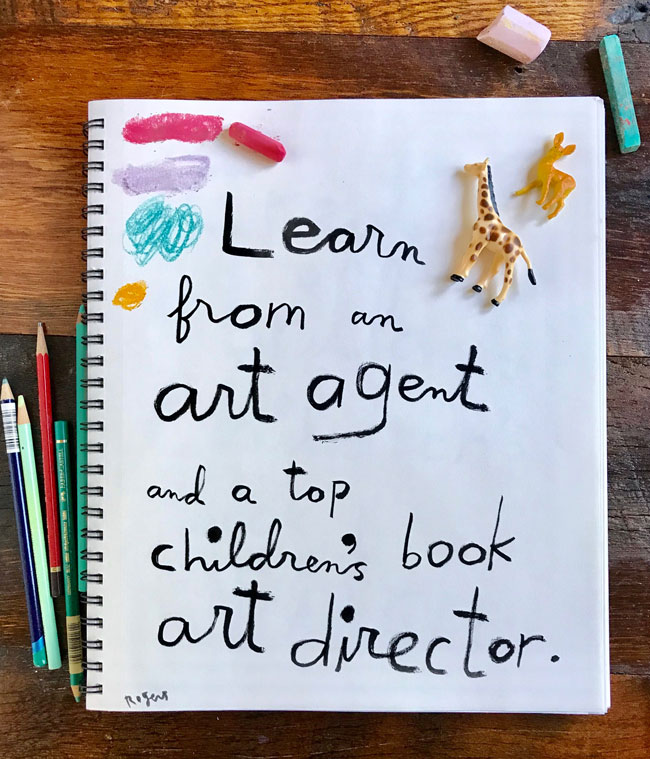 Learn
from an
art agent
and a top
children's book
art director.
Rogers